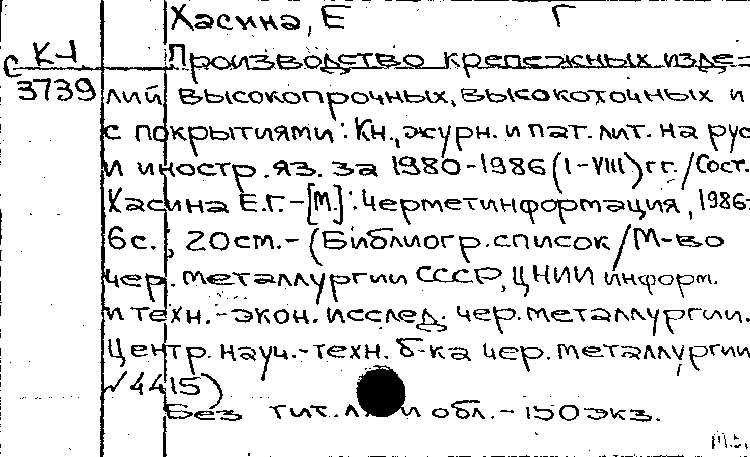 Хасина, Е Г
с К-1
3739
Производство крепежных изде-
лий высокопрочных, высокоточных и
с покрытиями: Кн., журн. и пат. лит. на рус
и иностр. яз. за 1980-1986 (I-VIII) гг. / Сост.
Хасина Е.Г. - [М.]: Черметинформация, 1986-
6с.; 20см. - (Библиогр. список / М-во
чер. металлургии СССР, ЦНИИ информ.
и техн.-экон. исслед. чер. металлургии.
Центр. науч.-техн. б-ка чер. металлургии
√4415)
Без тит. л. и обл. - 150 экз.